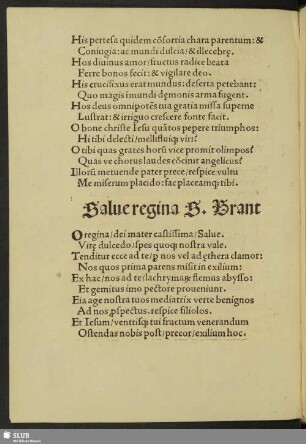 His pertesa quidem cōsortia chara parentum: &
Coniugia: ac mundi dulcia/ & illecebrę.
Hos diuinus amor/ fructus radice beata
Ferre bonos fecit: & vigilare deo.
His crucifixus erat mundus: deserta petebant:
Quo magis immundi demonis arma fugent.
Hos deus omnipotēs tua gratia missa superne
Lustrat: & irriguo crescere fonte facit.
O bone christe Iesu quātos pepere triumphos:
Hi tibi delecti/ melliflui uiri?
O tibi quas grates horū vice promit olimpos?
Quas ve chorus laudes cōcinit angelicus?
Illorū metuende pater prece/ respice vultu
Me miserum placido: fac placeamq; tibi.
Salue regina S. Brant
O regina/ dei mater castissima/ Salue.
Vitę dulcedo/ spes quoq; nostra vale.
Tenditur ecce ad te/ p nos vel ad ęthera clamor:
Nos quos prima parens misit in exilium:
Ex hac/ nos ad te/ lachrymaq; flemus abysso:
Et gemitus imo pectore proueniunt.
Eia age nostra tuos mediatrix verte benignos
Ad nos pspectus. respice filiolos.
Et Iesum/ ventrisq; tui fructum venerandum
Ostendas nobis post/ precor/ exilium hoc.
SLUB